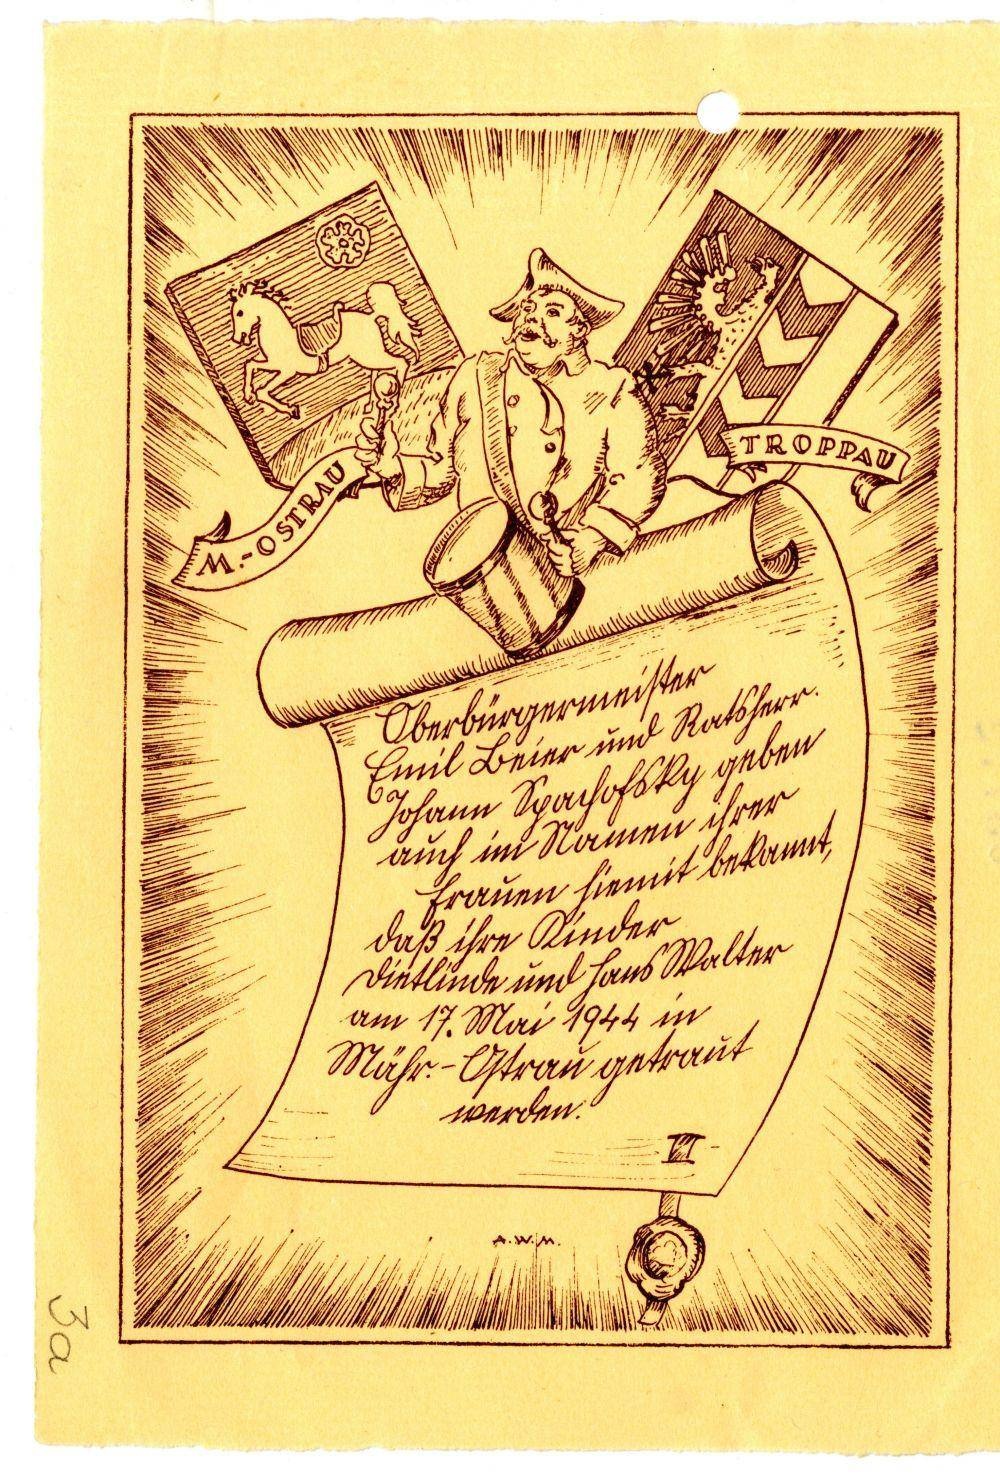 M.-OSTRAU
TROPPAU
Oberbürgermeister
Emil Beier und Ratsherr
Johann Spachofsky geben
auch im Namen ihrer
Frauen hiemit bekannt,
daß ihre Kinder
Dietlinde und Hans Walter
am 17. Mai 1944 in
Mähr.-Ostrau getraut
werden.
VI
A.W.M.
3a